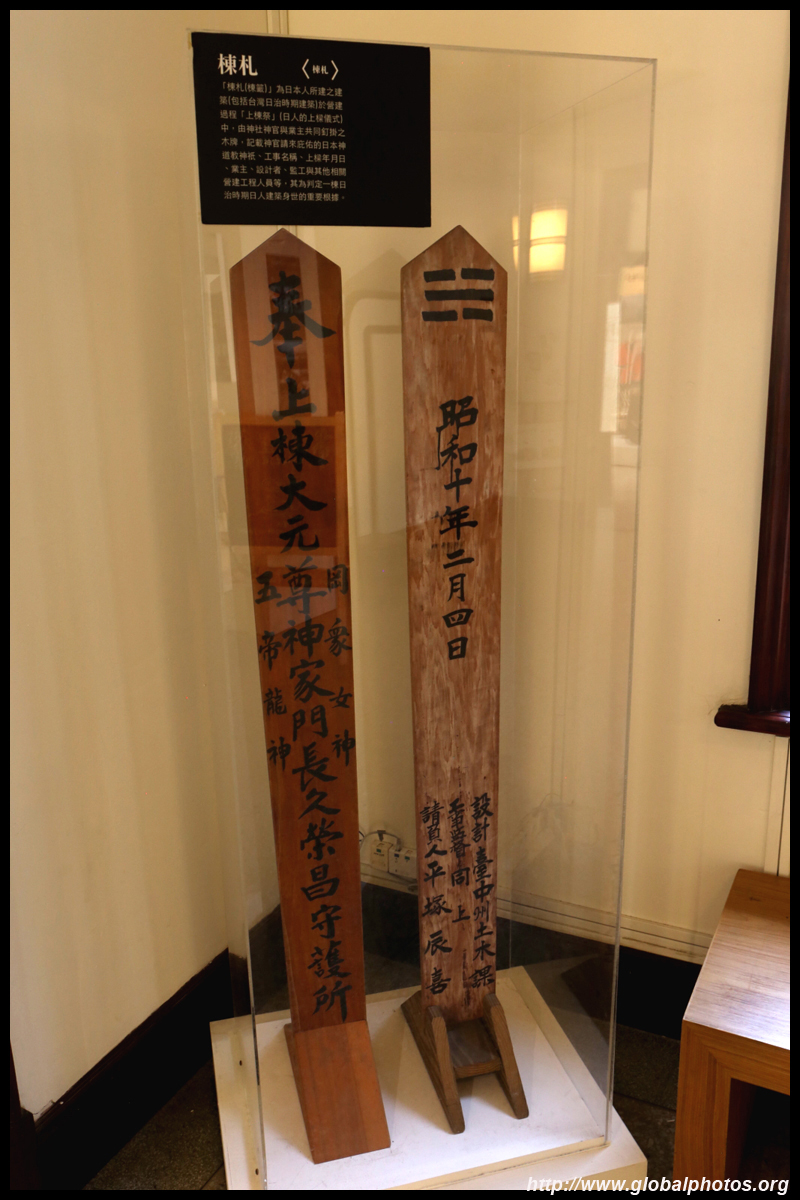 棟札 〈棟札〉
「棟札(棟簽)」為日本人所建之建
築(包括台灣日治時期建築)於營建
過程「上棟祭」(日人的上樑儀式)
中，由神社神官與業主共同釘掛之
木牌，記載神官請來庇佑的日本神
道教神祇、工事名稱、上樑年月日
、業主、設計者、監工與其他相關
營建工程人員等，其為判定一棟日
治時期日人建築身世的重要根據。
奉上棟大元尊神家門長久榮昌守護所
罔象女神
五帝龍神
昭和十年二月四日
設計臺中州土木課
同上
請負人平塚辰喜
http://www.globalphotos.org